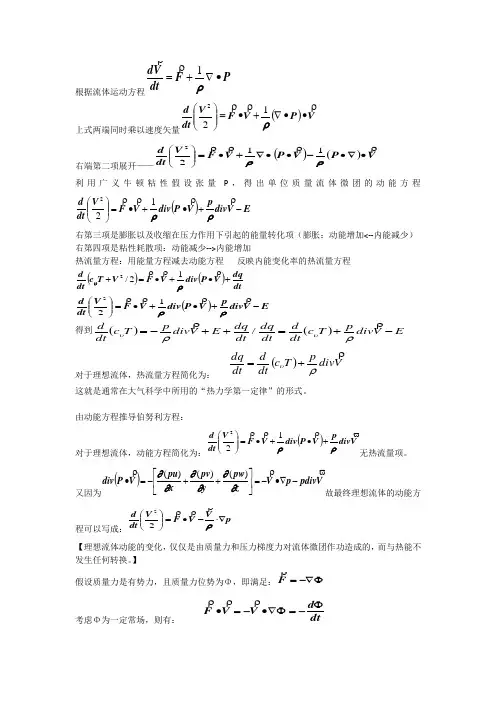 根据流体运动方程 $\frac{d\vec{V}}{dt}=\vec{F}+\frac{1}{\rho}\nabla\bullet P$
上式两端同时乘以速度矢量 $\frac{d}{dt}\left(\frac{V^2}{2}\right)=\vec{F}\bullet\vec{V}+\frac{1}{\rho}(\nabla\bullet P)\bullet\vec{V}$
右端第二项展开—— $\frac{d}{dt}\left(\frac{V^2}{2}\right)=\vec{F}\bullet\vec{V}+\frac{1}{\rho}\nabla\bullet(P\bullet\vec{V})-\frac{1}{\rho}(P\bullet\nabla)\bullet\vec{V}$
利用广义牛顿粘性假设张量 P，得出单位质量流体微团的动能方程
$\frac{d}{dt}\left(\frac{V^2}{2}\right)=\vec{F}\bullet\vec{V}+\frac{1}{\rho}div(P\bullet\vec{V})+\frac{p}{\rho}div\vec{V}-E$
右第三项是膨胀以及收缩在压力作用下引起的能量转化项（膨胀：动能增加<--内能减少）
右第四项是粘性耗散项：动能减少-->内能增加
热流量方程：用能量方程减去动能方程 反映内能变化率的热流量方程
$\frac{d}{dt}(c_υ T+V^2/2)=\vec{F}\bullet\vec{V}+\frac{1}{\rho}div(P\bullet\vec{V})+\frac{dq}{dt}$
$\frac{d}{dt}\left(\frac{V^2}{2}\right)=\vec{F}\bullet\vec{V}+\frac{1}{\rho}div(P\bullet\vec{V})+\frac{p}{\rho}div\vec{V}-E$
得到 $\frac{d}{dt}(c_υ T)=-\frac{p}{\rho}div\vec{V}+E+\frac{dq}{dt}/\frac{dq}{dt}=\frac{d}{dt}(c_υ T)+\frac{p}{\rho}div\vec{V}-E$
对于理想流体，热流量方程简化为： $\frac{dq}{dt}=\frac{d}{dt}c_υ T+\frac{p}{\rho}div\vec{V}$
这就是通常在大气科学中所用的“热力学第一定律”的形式。
由动能方程推导伯努利方程：
对于理想流体，动能方程简化为： $\frac{d}{dt}\left(\frac{V^2}{2}\right)=\vec{F}\bullet\vec{V}+\frac{1}{\rho}div(P\bullet\vec{V})+\frac{p}{\rho}div\vec{V}$ 无热流量项。
又因为 $div(P\bullet\vec{V})=-\left[\frac{\partial(pu)}{\partial x}+\frac{\partial(pv)}{\partial y}+\frac{\partial(pw)}{\partial z}\right]=-\vec{V}\bullet\nabla p-pdiv\vec{V}$ 故最终理想流体的动能方
程可以写成： $\frac{d}{dt}\left(\frac{V^2}{2}\right)=\vec{F}\bullet\vec{V}-\frac{\vec{V}}{\rho}\cdot\nabla p$
【理想流体动能的变化，仅仅是由质量力和压力梯度力对流体微团作功造成的，而与热能不
发生任何转换。】
假设质量力是有势力，且质量力位势为Φ，即满足： $\vec{F}=-\nabla\Phi$
考虑Φ为一定常场，则有： $\vec{F}\bullet\vec{V}=-\vec{V}\bullet\nabla\Phi=-\frac{d\Phi}{dt}$